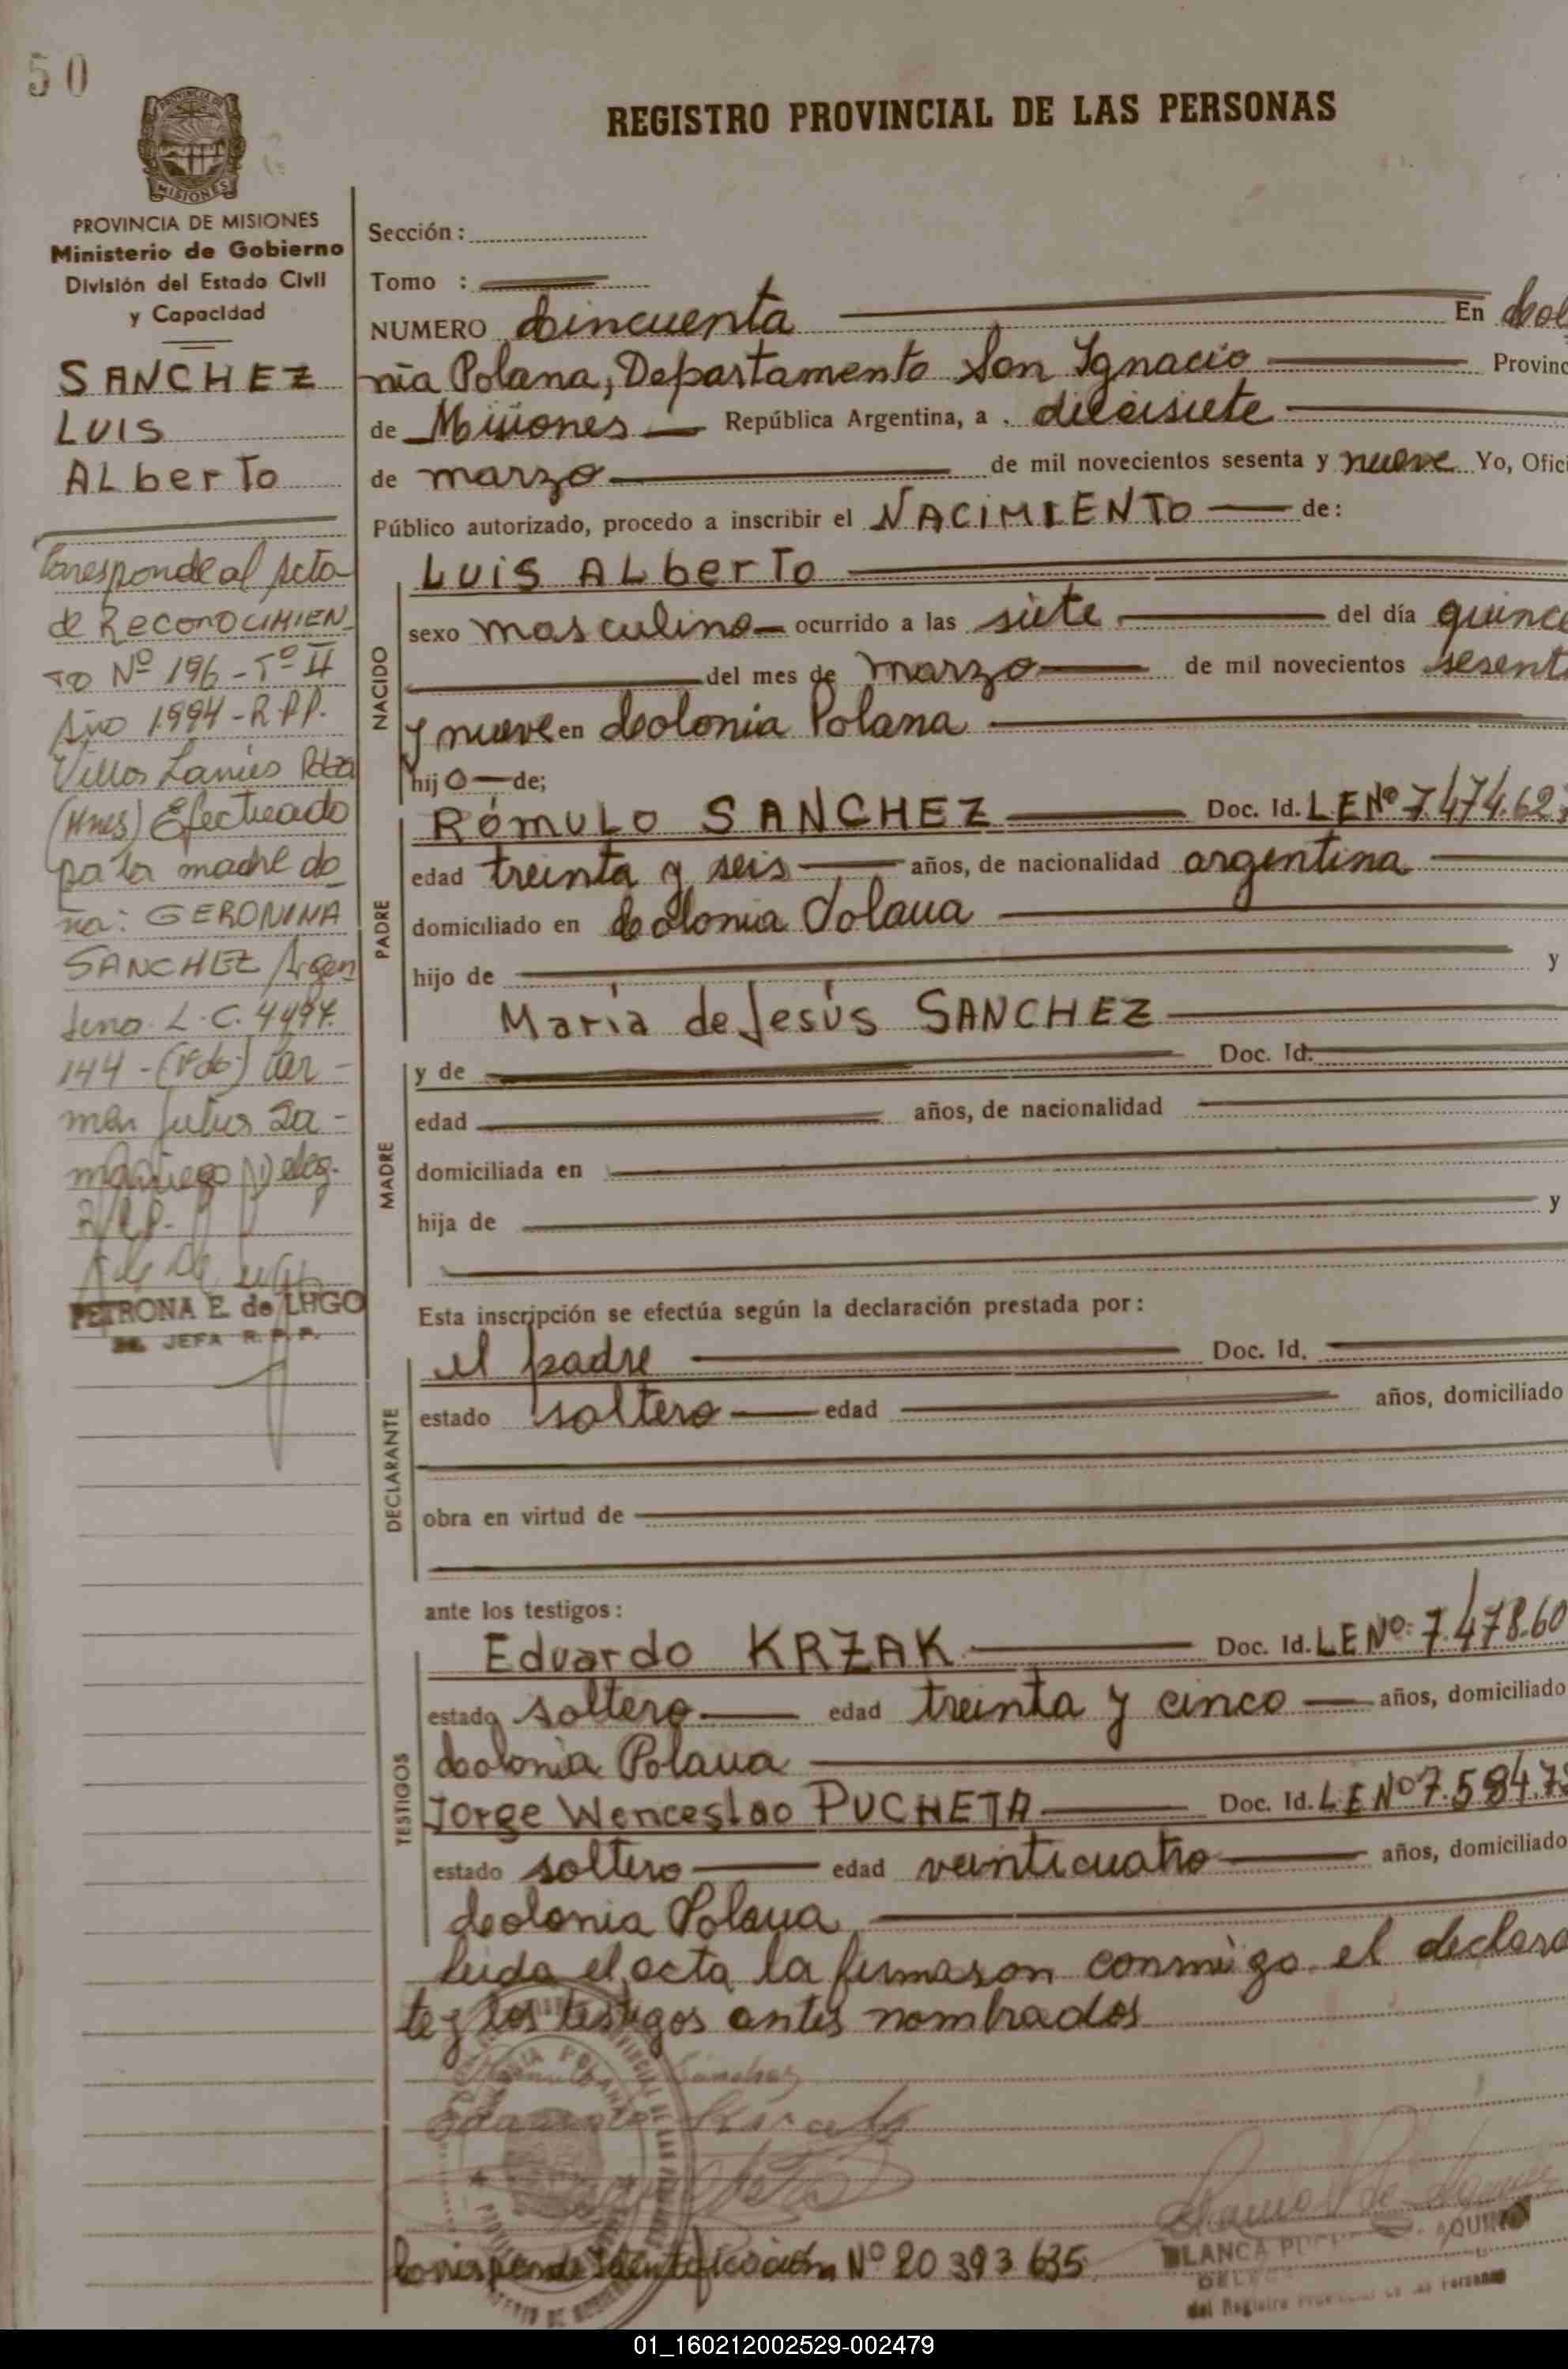 50
REGISTRO PROVINCIAL DE LAS PERSONAS
PROVINCIA DE
MISIONES
PROVINCIA DE MISIONES
Ministerio de Gobierno
División del Estado Civil
y Capacidad
SANCHEZ
LUIS
ALberTo
Corresponde al Acta
de RECONOCIMIEN
TO Nº 196 - Tº II
Año 1994 - R.P.P.
Villa Lanús
(Mnes) Efectuado
por la madre do
ña: GERONIMA
SANCHEZ Argen
tina L.C. 4494.
144 - (Fdo)
Deleg.
PETRONA E. de LUGO
JEFA R.P.P.
Sección:
Tomo :
NUMERO Cincuenta En Colo
nia Polana, Departamento San Ignacio Provinc
de Misiones República Argentina, a diecisiete
de marzo de mil novecientos sesenta y nueve Yo, Ofici
Público autorizado, procedo a inscribir el NACIMIENTO de:
NACIDO
LUIS ALberTo
sexo masculino ocurrido a las siete del día quince
del mes de marzo de mil novecientos sesent
y nueve en Colonia Polana
hijo de;
PADRE
RÓMULO SANCHEZ Doc. Id. LE Nº 7.474.62
edad treinta y seis años, de nacionalidad argentina
domiciliado en Colonia Polana
hijo de y
María de Jesús SANCHEZ
MADRE
y de Doc. Id.
edad años, de nacionalidad
domiciliada en
hija de y
Esta inscripción se efectúa según la declaración prestada por:
DECLARANTE
el padre Doc. Id.
estado soltero edad años, domiciliado
obra en virtud de
ante los testigos:
TESTIGOS
Eduardo KRZAK Doc. Id. LE Nº 7.478.60
estado soltero edad treinta y cinco años, domiciliado
Colonia Polana
Jorge Wenceslao PUCHETA Doc. Id. LE Nº 7.584.78
estado soltero edad veinticuatro años, domiciliado
Colonia Polana
Leida el acta la firmaron conmigo el declara
te y los testigos antes nombrados
Sanchez
BLANCA AQUINO
del Registro de las Personas
Corresponde Identificación Nº 20 393 635
01_160212002529-002479